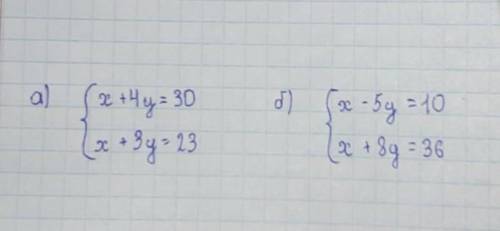 а) { x + 4y = 30
x + 3y = 23
б) { x - 5y = 10
x + 8y = 36